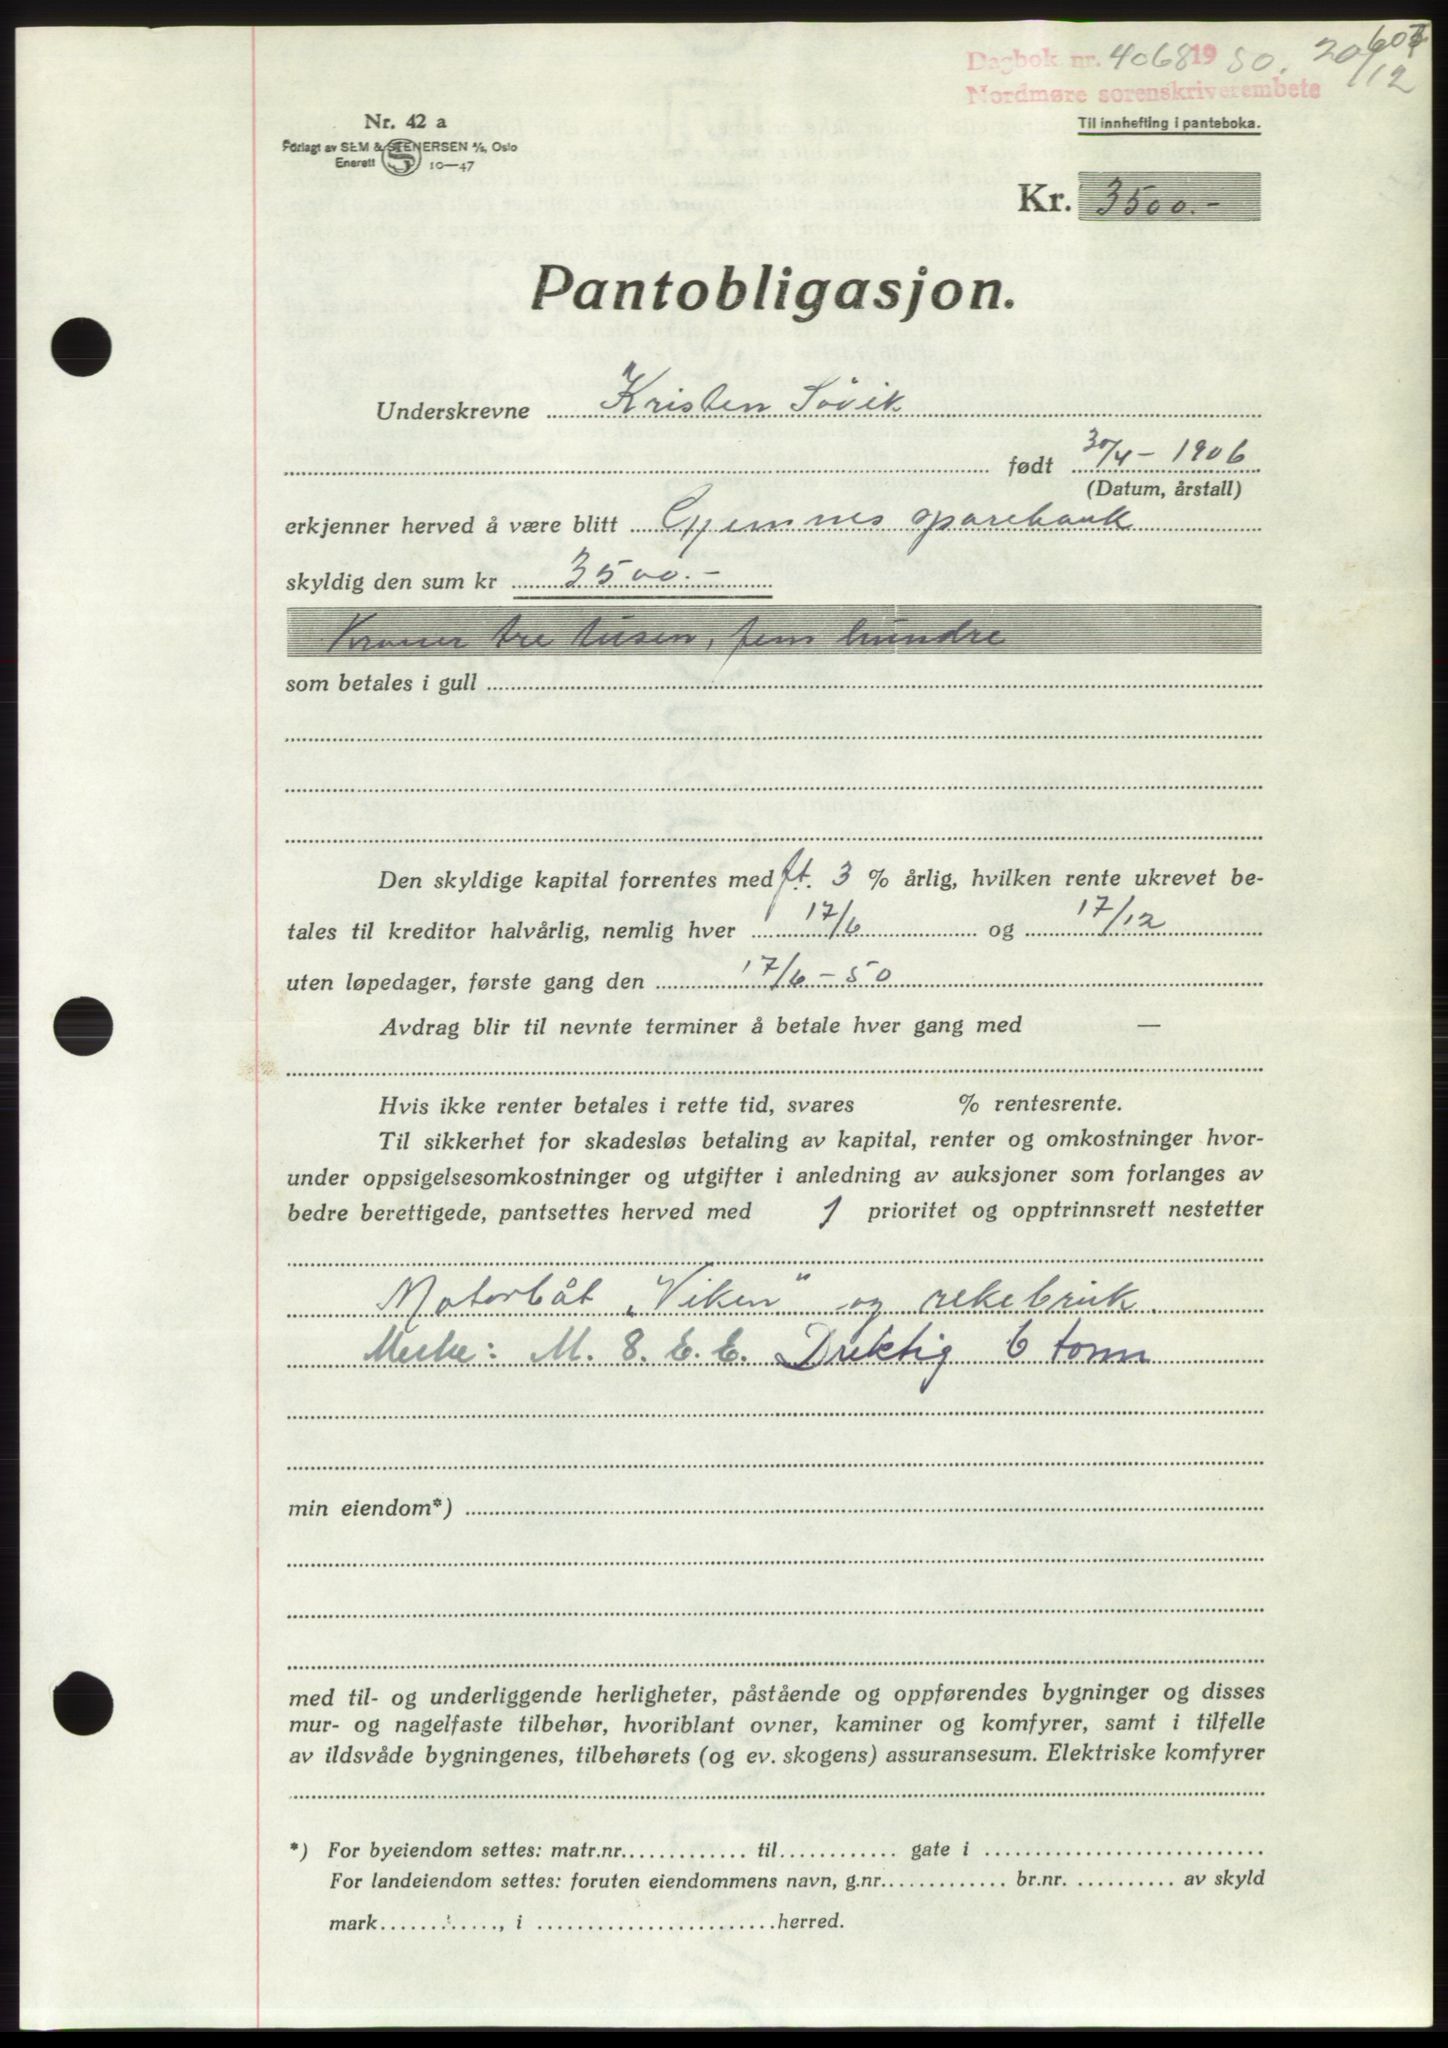 607
Dagbok nr. 4068 1950. 20/12
Nordmøre sorenskriverembete
Nr. 42 a
Til innhefting i panteboka.
Forlagt av SEM & STENERSEN A/S, Oslo
Enerett S 10—47
Kr. 3500.-
Pantobligasjon.
Underskrevne Kristen Søvik
født 30/4 - 1906
(Datum, årstall)
erkjenner herved å være blitt Gjemnes sparebank
skyldig den sum kr 3500.-
Kroner tre tusen, fem hundre
som betales i gull
Den skyldige kapital forrentes med f.t. 3 % årlig, hvilken rente ukrevet be-
tales til kreditor halvårlig, nemlig hver 17/6 og 17/12
uten løpedager, første gang den 17/6 - 50
Avdrag blir til nevnte terminer å betale hver gang med —
Hvis ikke renter betales i rette tid, svares % rentesrente.
Til sikkerhet for skadesløs betaling av kapital, renter og omkostninger hvor-
under oppsigelsesomkostninger og utgifter i anledning av auksjoner som forlanges av
bedre berettigede, pantsettes herved med 1 prioritet og opptrinnsrett nestetter
Motorbåt „Viken" og rekebruk.
Merke: M. 8. E. E. Drektig 6 tonn
min eiendom*)
med til- og underliggende herligheter, påstående og oppførendes bygninger og disses
mur- og nagelfaste tilbehør, hvoriblant ovner, kaminer og komfyrer, samt i tilfelle
av ildsvåde bygningenes, tilbehørets (og ev. skogens) assuransesum. Elektriske komfyrer
*) For byeiendom settes: matr.nr. til gate i
For landeiendom settes: foruten eiendommens navn, g.nr. br.nr. av skyld
mark , i herred.